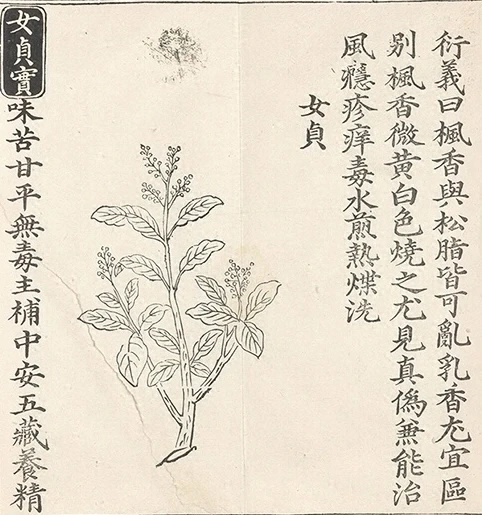 衍義曰楓香與松脂皆可亂乳香尤宜區
別楓香微黃白色燒之尤見真僞兼能治
風癮疹痒毒水煎熱煠洗
女貞
女貞實味苦甘平無毒主補中安五藏養精